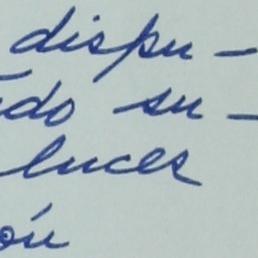 dispu-
do su-
luces
ón